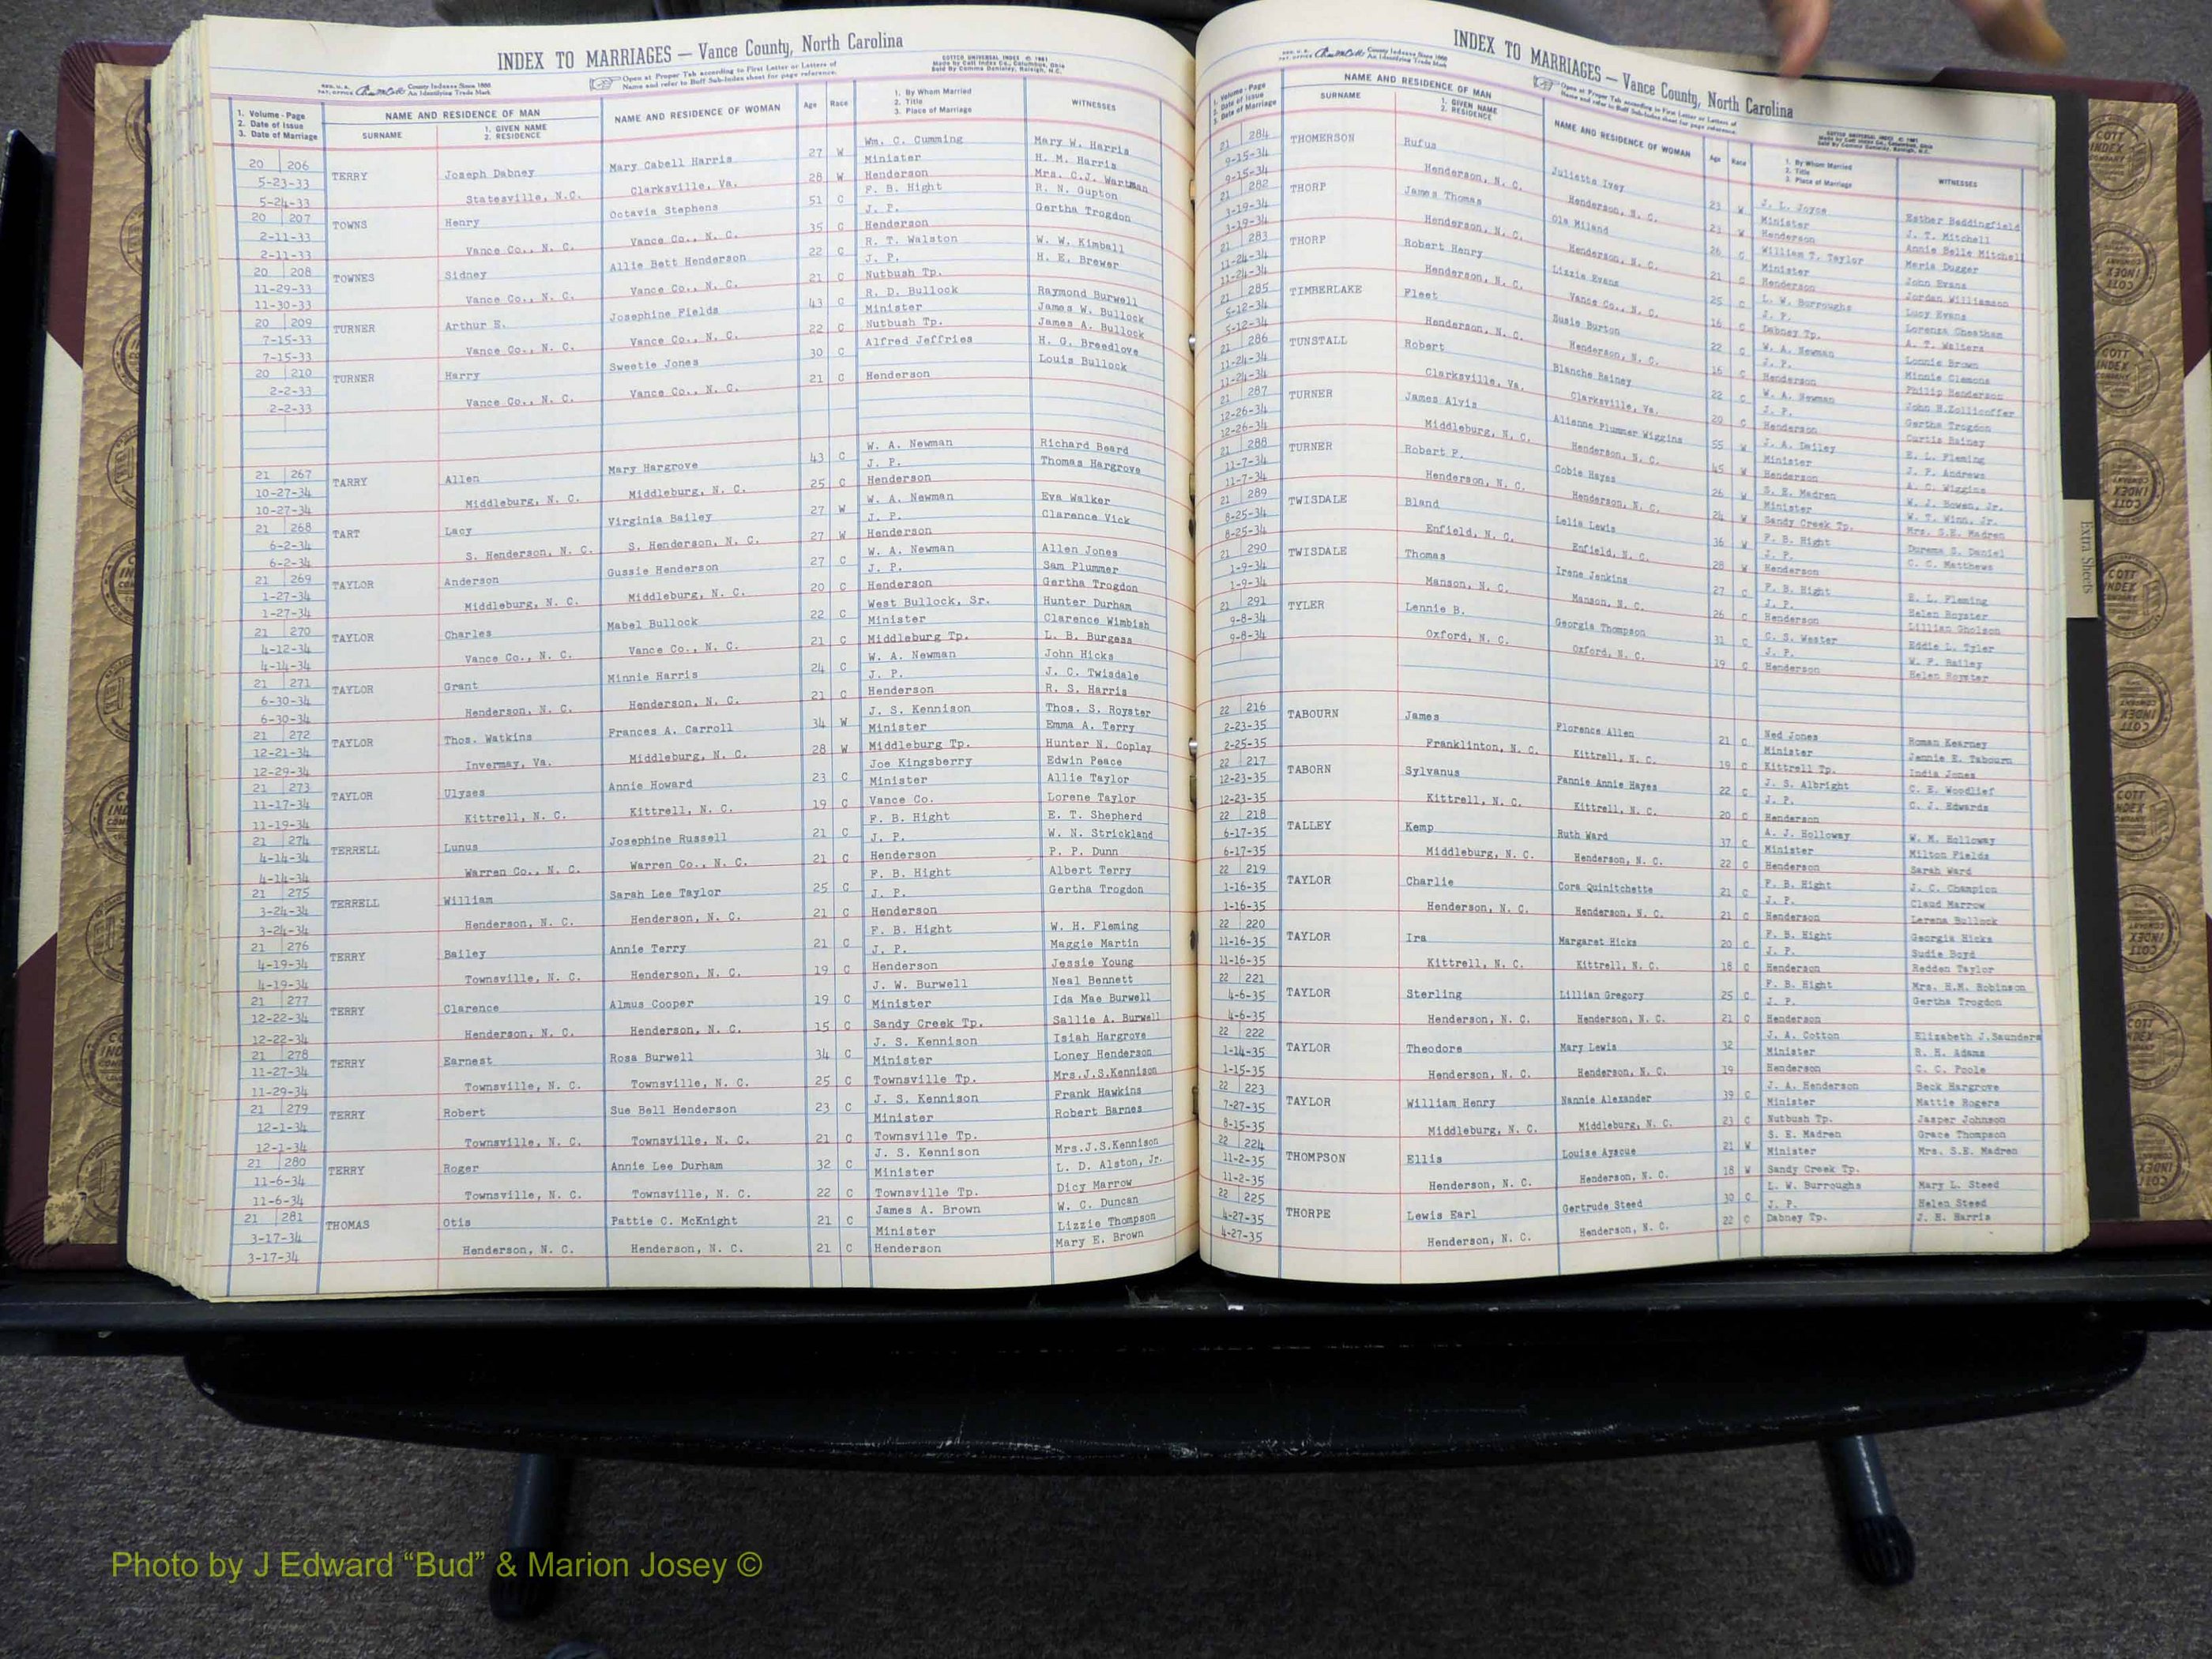 INDEX TO MARRIAGES — Vance County, North Carolina
REG. U. S. PAT. OFFICE County Indexes Since 1888 An Identifying Trade Mark
Open at Proper Tab according to First Letter or Letters of
Name and refer to Buff Sub-Index sheet for page reference.
COTTCO UNIVERSAL INDEX © 1961
Made by Cott Index Co., Columbus, Ohio
Sold By Commie Danieley, Raleigh, N.C.
1. Volume - Page
2. Date of Issue
3. Date of Marriage
NAME AND RESIDENCE OF MAN
SURNAME
1. GIVEN NAME
2. RESIDENCE
NAME AND RESIDENCE OF WOMAN
Age Race
1. By Whom Married
2. Title
3. Place of Marriage
WITNESSES
20 206 TERRY Joseph Dabney Mary Cabell Harris 27 W Wm. C. Cumming Mary W. Harris
5-23-33 Minister H. M. Harris
5-24-33 Statesville, N.C. Clarksville, Va. 28 W Henderson Mrs. C.J. Wartman
20 207 TOWNS Henry Octavia Stephens 51 C F. B. Hight R. N. Gupton
2-11-33 J. P. Gertha Trogdon
2-11-33 Vance Co., N. C. Vance Co., N. C. 35 C Henderson
20 208 TOWNES Sidney Allie Bett Henderson 22 C R. T. Walston W. W. Kimball
11-29-33 J. P. H. E. Brewer
11-30-33 Vance Co., N. C. Vance Co., N. C. 21 C Nutbush Tp.
20 209 TURNER Arthur E. Josephine Fields 43 C R. D. Bullock Raymond Burwell
7-15-33 Minister James W. Bullock
7-15-33 Vance Co., N. C. Vance Co., N. C. 22 C Nutbush Tp. James A. Bullock
20 210 TURNER Harry Sweetie Jones 30 C Alfred Jeffries H. G. Breedlove
2-2-33 Louis Bullock
2-2-33 Vance Co., N. C. Vance Co., N. C. 21 C Henderson
21 267 TARRY Allen Mary Hargrove 43 C W. A. Newman Richard Beard
10-27-34 J. P. Thomas Hargrove
10-27-34 Middleburg, N. C. Middleburg, N. C. 25 C Henderson
21 268 TART Lacy Virginia Bailey 27 W W. A. Newman Eva Walker
6-2-34 J. P. Clarence Vick
6-2-34 S. Henderson, N. C. S. Henderson, N. C. 27 W Henderson
21 269 TAYLOR Anderson Gussie Henderson 27 C W. A. Newman Allen Jones
1-27-34 J. P. Sam Plummer
1-27-34 Middleburg, N. C. Middleburg, N. C. 20 C Henderson Gertha Trogdon
21 270 TAYLOR Charles Mabel Bullock 22 C West Bullock, Sr. Hunter Durham
4-12-34 Minister Clarence Wimbish
4-14-34 Vance Co., N. C. Vance Co., N. C. 21 C Middleburg Tp. L. B. Burgess
21 271 TAYLOR Grant Minnie Harris 24 C W. A. Newman John Hicks
6-30-34 J. P. J. C. Twisdale
6-30-34 Henderson, N. C. Henderson, N. C. 21 C Henderson R. S. Harris
21 272 TAYLOR Thos. Watkins Frances A. Carroll 34 W J. S. Kennison Thos. S. Royster
12-21-34 Minister Emma A. Terry
12-29-34 Invermay, Va. Middleburg, N. C. 28 W Middleburg Tp. Hunter N. Copley
21 273 TAYLOR Ulyses Annie Howard 23 C Joe Kingsberry Edwin Peace
11-17-34 Minister Allie Taylor
11-19-34 Kittrell, N. C. Kittrell, N. C. 19 C Vance Co. Lorene Taylor
21 274 TERRELL Lunus Josephine Russell 21 C F. B. Hight E. T. Shepherd
4-14-34 J. P. W. N. Strickland
4-14-34 Warren Co., N. C. Warren Co., N. C. 21 C Henderson P. P. Dunn
21 275 TERRELL William Sarah Lee Taylor 25 C F. B. Hight Albert Terry
3-24-34 J. P. Gertha Trogdon
3-24-34 Henderson, N. C. Henderson, N. C. 21 C Henderson
21 276 TERRY Bailey Annie Terry 21 C F. B. Hight W. H. Fleming
4-19-34 J. P. Maggie Martin
4-19-34 Townsville, N. C. Henderson, N. C. 19 C Henderson Jessie Young
21 277 TERRY Clarence Almus Cooper 19 C J. W. Burwell Neal Bennett
12-22-34 Minister Ida Mae Burwell
12-22-34 Henderson, N. C. Henderson, N. C. 15 C Sandy Creek Tp. Sallie A. Burwell
21 278 TERRY Earnest Rosa Burwell 34 C J. S. Kennison Isiah Hargrove
11-27-34 Minister Loney Henderson
11-29-34 Townsville, N. C. Townsville, N. C. 25 C Townsville Tp. Mrs.J.S.Kennison
21 279 TERRY Robert Sue Bell Henderson 23 C J. S. Kennison Frank Hawkins
12-1-34 Minister Robert Barnes
12-1-34 Townsville, N. C. Townsville, N. C. 21 C Townsville Tp.
21 280 TERRY Roger Annie Lee Durham 32 C J. S. Kennison Mrs.J.S.Kennison
11-6-34 Minister L. D. Alston, Jr.
11-6-34 Townsville, N. C. Townsville, N. C. 22 C Townsville Tp. Dicy Marrow
21 281 THOMAS Otis Pattie C. McKnight 21 C James A. Brown W. C. Duncan
3-17-34 Minister Lizzie Thompson
3-17-34 Henderson, N. C. Henderson, N. C. 21 C Henderson Mary E. Brown
INDEX TO MARRIAGES — Vance County, North Carolina
REG. U. S. PAT. OFFICE County Indexes Since 1888 An Identifying Trade Mark
Open at Proper Tab according to First Letter or Letters of
Name and refer to Buff Sub-Index sheet for page reference.
COTTCO UNIVERSAL INDEX © 1961
Made by Cott Index Co., Columbus, Ohio
Sold By Commie Danieley, Raleigh, N.C.
1. Volume - Page
2. Date of Issue
3. Date of Marriage
NAME AND RESIDENCE OF MAN
SURNAME
1. GIVEN NAME
2. RESIDENCE
NAME AND RESIDENCE OF WOMAN
Age Race
1. By Whom Married
2. Title
3. Place of Marriage
WITNESSES
21 284 THOMERSON Rufus Juliette Ivey 23 W J. L. Joyce Esther Beddingfield
9-15-34 Minister J. T. Mitchell
9-15-34 Henderson, N. C. Henderson, N. C. 23 W Henderson Annie Belle Mitchell
21 282 THORP James Thomas Ola Miland 26 C William T. Taylor Meria Dugger
3-19-34 Minister John Evans
3-19-34 Henderson, N. C. Henderson, N. C. 21 C Henderson Jordan Williamson
21 283 THORP Robert Henry Lizzie Evans 25 C L. W. Burroughs Lucy Evans
11-24-34 J. P. Lorenza Cheatham
11-24-34 Henderson, N. C. Vance Co., N. C. 16 C Dabney Tp. A. T. Walters
21 285 TIMBERLAKE Fleet Susie Burton 22 C W. A. Newman Lonnie Brown
5-12-34 J. P. Minnie Clemons
5-12-34 Henderson, N. C. Henderson, N. C. 16 C Henderson Philip Henderson
21 286 TUNSTALL Robert Blanche Rainey 22 C W. A. Newman John H.Zollicoffer
11-24-34 J. P. Gertha Trogdon
11-24-34 Clarksville, Va. Clarksville, Va. 20 C Henderson Curtis Rainey
21 287 TURNER James Alvis Alienne Plummer Wiggins 55 W J. A. Dailey E. L. Fleming
12-26-34 Minister J. P. Andrews
12-26-34 Middleburg, N. C. Henderson, N. C. 45 W Henderson A. C. Wiggins
21 288 TURNER Robert P. Cobie Hayes 26 W S. E. Madren W. J. Bowen, Jr.
11-7-34 Minister W. T. Winn, Jr.
11-7-34 Henderson, N. C. Henderson, N. C. 24 W Sandy Creek Tp. Mrs. S.E. Madren
21 289 TWISDALE Bland Lelia Lewis 36 W F. B. Hight Durema S. Daniel
8-25-34 J. P. C. C. Matthews
8-25-34 Enfield, N. C. Enfield, N. C. 28 W Henderson
21 290 TWISDALE Thomas Irene Jenkins 27 C F. B. Hight E. L. Fleming
1-9-34 J. P. Helen Royster
1-9-34 Manson, N. C. Manson, N. C. 26 C Henderson Lillian Gholson
21 291 TYLER Lennie B. Georgia Thompson 31 C C. S. Wester Eddie L. Tyler
9-8-34 J. P. W. P. Bailey
9-8-34 Oxford, N. C. Oxford, N. C. 19 C Henderson Helen Royster
22 216 TABOURN James Florence Allen 21 C Ned Jones Roman Kearney
2-23-35 Minister Jennie E. Tabourn
2-25-35 Franklinton, N. C. Kittrell, N. C. 19 C Kittrell Tp. India Jones
22 217 TABORN Sylvanus Fannie Annie Hayes 22 C J. S. Albright C. E. Woodlief
12-23-35 J. P. C. J. Edwards
12-23-35 Kittrell, N. C. Kittrell, N. C. 20 C Henderson
22 218 TALLEY Kemp Ruth Ward 37 C A. J. Holloway W. M. Holloway
6-17-35 Minister Milton Fields
6-17-35 Middleburg, N. C. Henderson, N. C. 22 C Henderson Sarah Ward
22 219 TAYLOR Charlie Cora Quinitchette 21 C F. B. Hight J. C. Champion
1-16-35 J. P. Claud Marrow
1-16-35 Henderson, N. C. Henderson, N. C. 21 C Henderson Lerena Bullock
22 220 TAYLOR Ira Margaret Hicks 20 C F. B. Hight Georgia Hicks
11-16-35 J. P. Sudie Boyd
11-16-35 Kittrell, N. C. Kittrell, N. C. 18 C Henderson Redden Taylor
22 221 TAYLOR Sterling Lillian Gregory 25 C F. B. Hight Mrs. H.M. Robinson
4-6-35 J. P. Gertha Trogdon
4-6-35 Henderson, N. C. Henderson, N. C. 21 C Henderson
22 222 TAYLOR Theodore Mary Lewis 32 J. A. Cotton Elizabeth J.Saunders
1-14-35 Minister R. H. Adams
1-15-35 Henderson, N. C. Henderson, N. C. 19 Henderson C. C. Poole
22 223 TAYLOR William Henry Nannie Alexander 39 C J. A. Henderson Beck Hargrove
7-27-35 Minister Mattie Rogers
8-15-35 Middleburg, N. C. Middleburg, N. C. 23 C Nutbush Tp. Jasper Johnson
22 224 THOMPSON Ellis Louise Ayscue 21 W S. E. Madren Grace Thompson
11-2-35 Minister Mrs. S.E. Madren
11-2-35 Henderson, N. C. Henderson, N. C. 18 W Sandy Creek Tp.
22 225 THORPE Lewis Earl Gertrude Steed 30 C L. W. Burroughs Mary L. Steed
4-27-35 J. P. Helen Steed
4-27-35 Henderson, N. C. Henderson, N. C. 22 C Dabney Tp. J. H. Harris
Extra Sheets
COTT INDEX COMPANY
Photo by J Edward “Bud” & Marion Josey ©